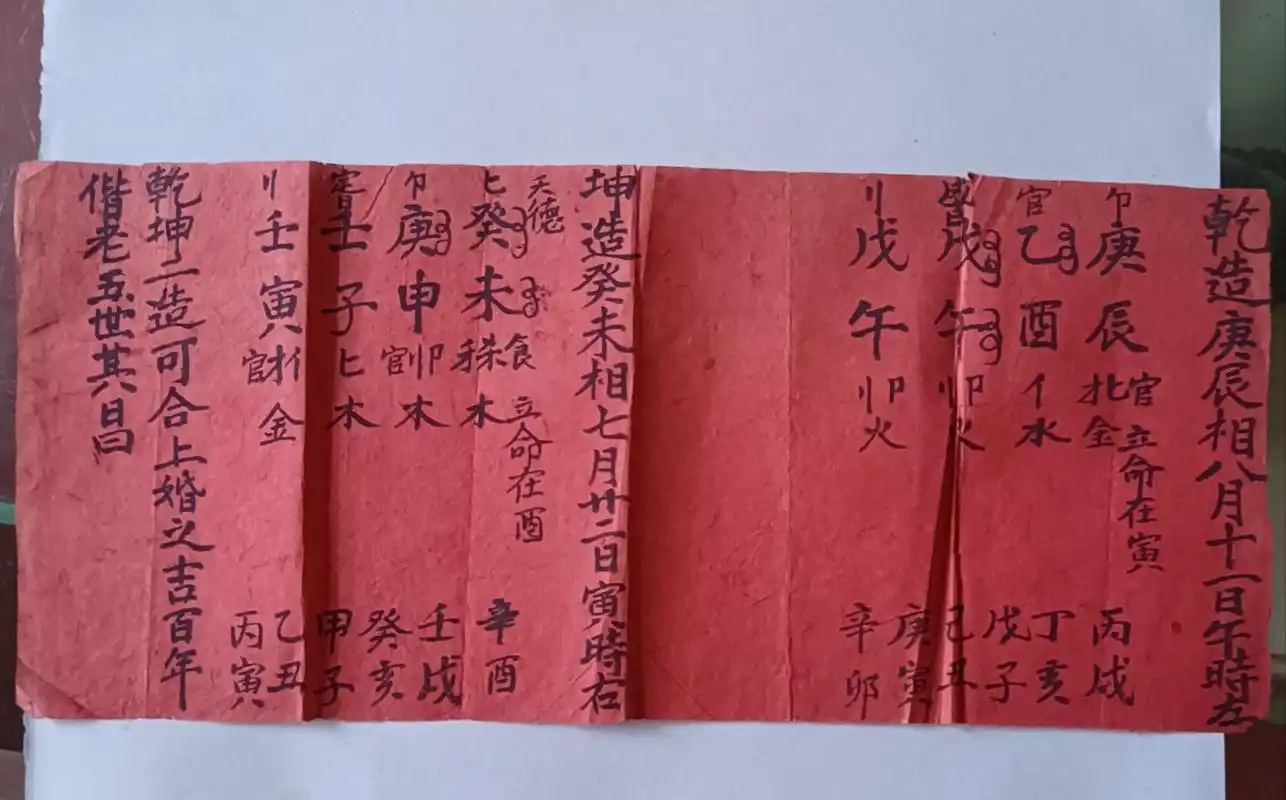 乾造庚辰相八月十一日午時左
官立命在寅
卩庚辰金
丙戌
官乙酉亻水
丁亥
戊子
戊午卩火
己丑
庚寅
刂戊午卩火
辛卯
坤造癸未相七月廿二日寅時右
天德
食立命在酉
癸未木
辛酉
卩庚申官卩木
壬戌
癸亥
壬子木
甲子
刂壬寅官金
乙丑
丙寅
乾坤二造可合上婚之吉百年
偕老五世其昌